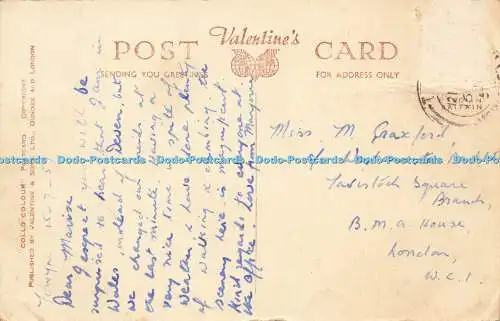 Valentine's
POST CARD
SENDING YOU GREETINGS
FOR ADDRESS ONLY
"COLLO COLOUR" POSTCARD COPYRIGHT
PUBLISHED BY VALENTINE & SONS, LTD., DUNDEE AND LONDON
Dear Marise
I expect you will be
surprised to hear that I am in
Wales, instead of Devon, but
we changed our minds at
the last minute. Having a
very nice time spite of
weather & have done plenty
of walking & climbing. the
scenery here is magnificent
Kind regards to everyone at
the office. Love from Marjorie
Miss M Graxford
Tavistock Square
Branch,
B.M.A House,
London,
W.C.1.
Dodo-Postcards Dodo-Postcards Dodo-Postcards Dodo-Postcards Dodo-Postcards